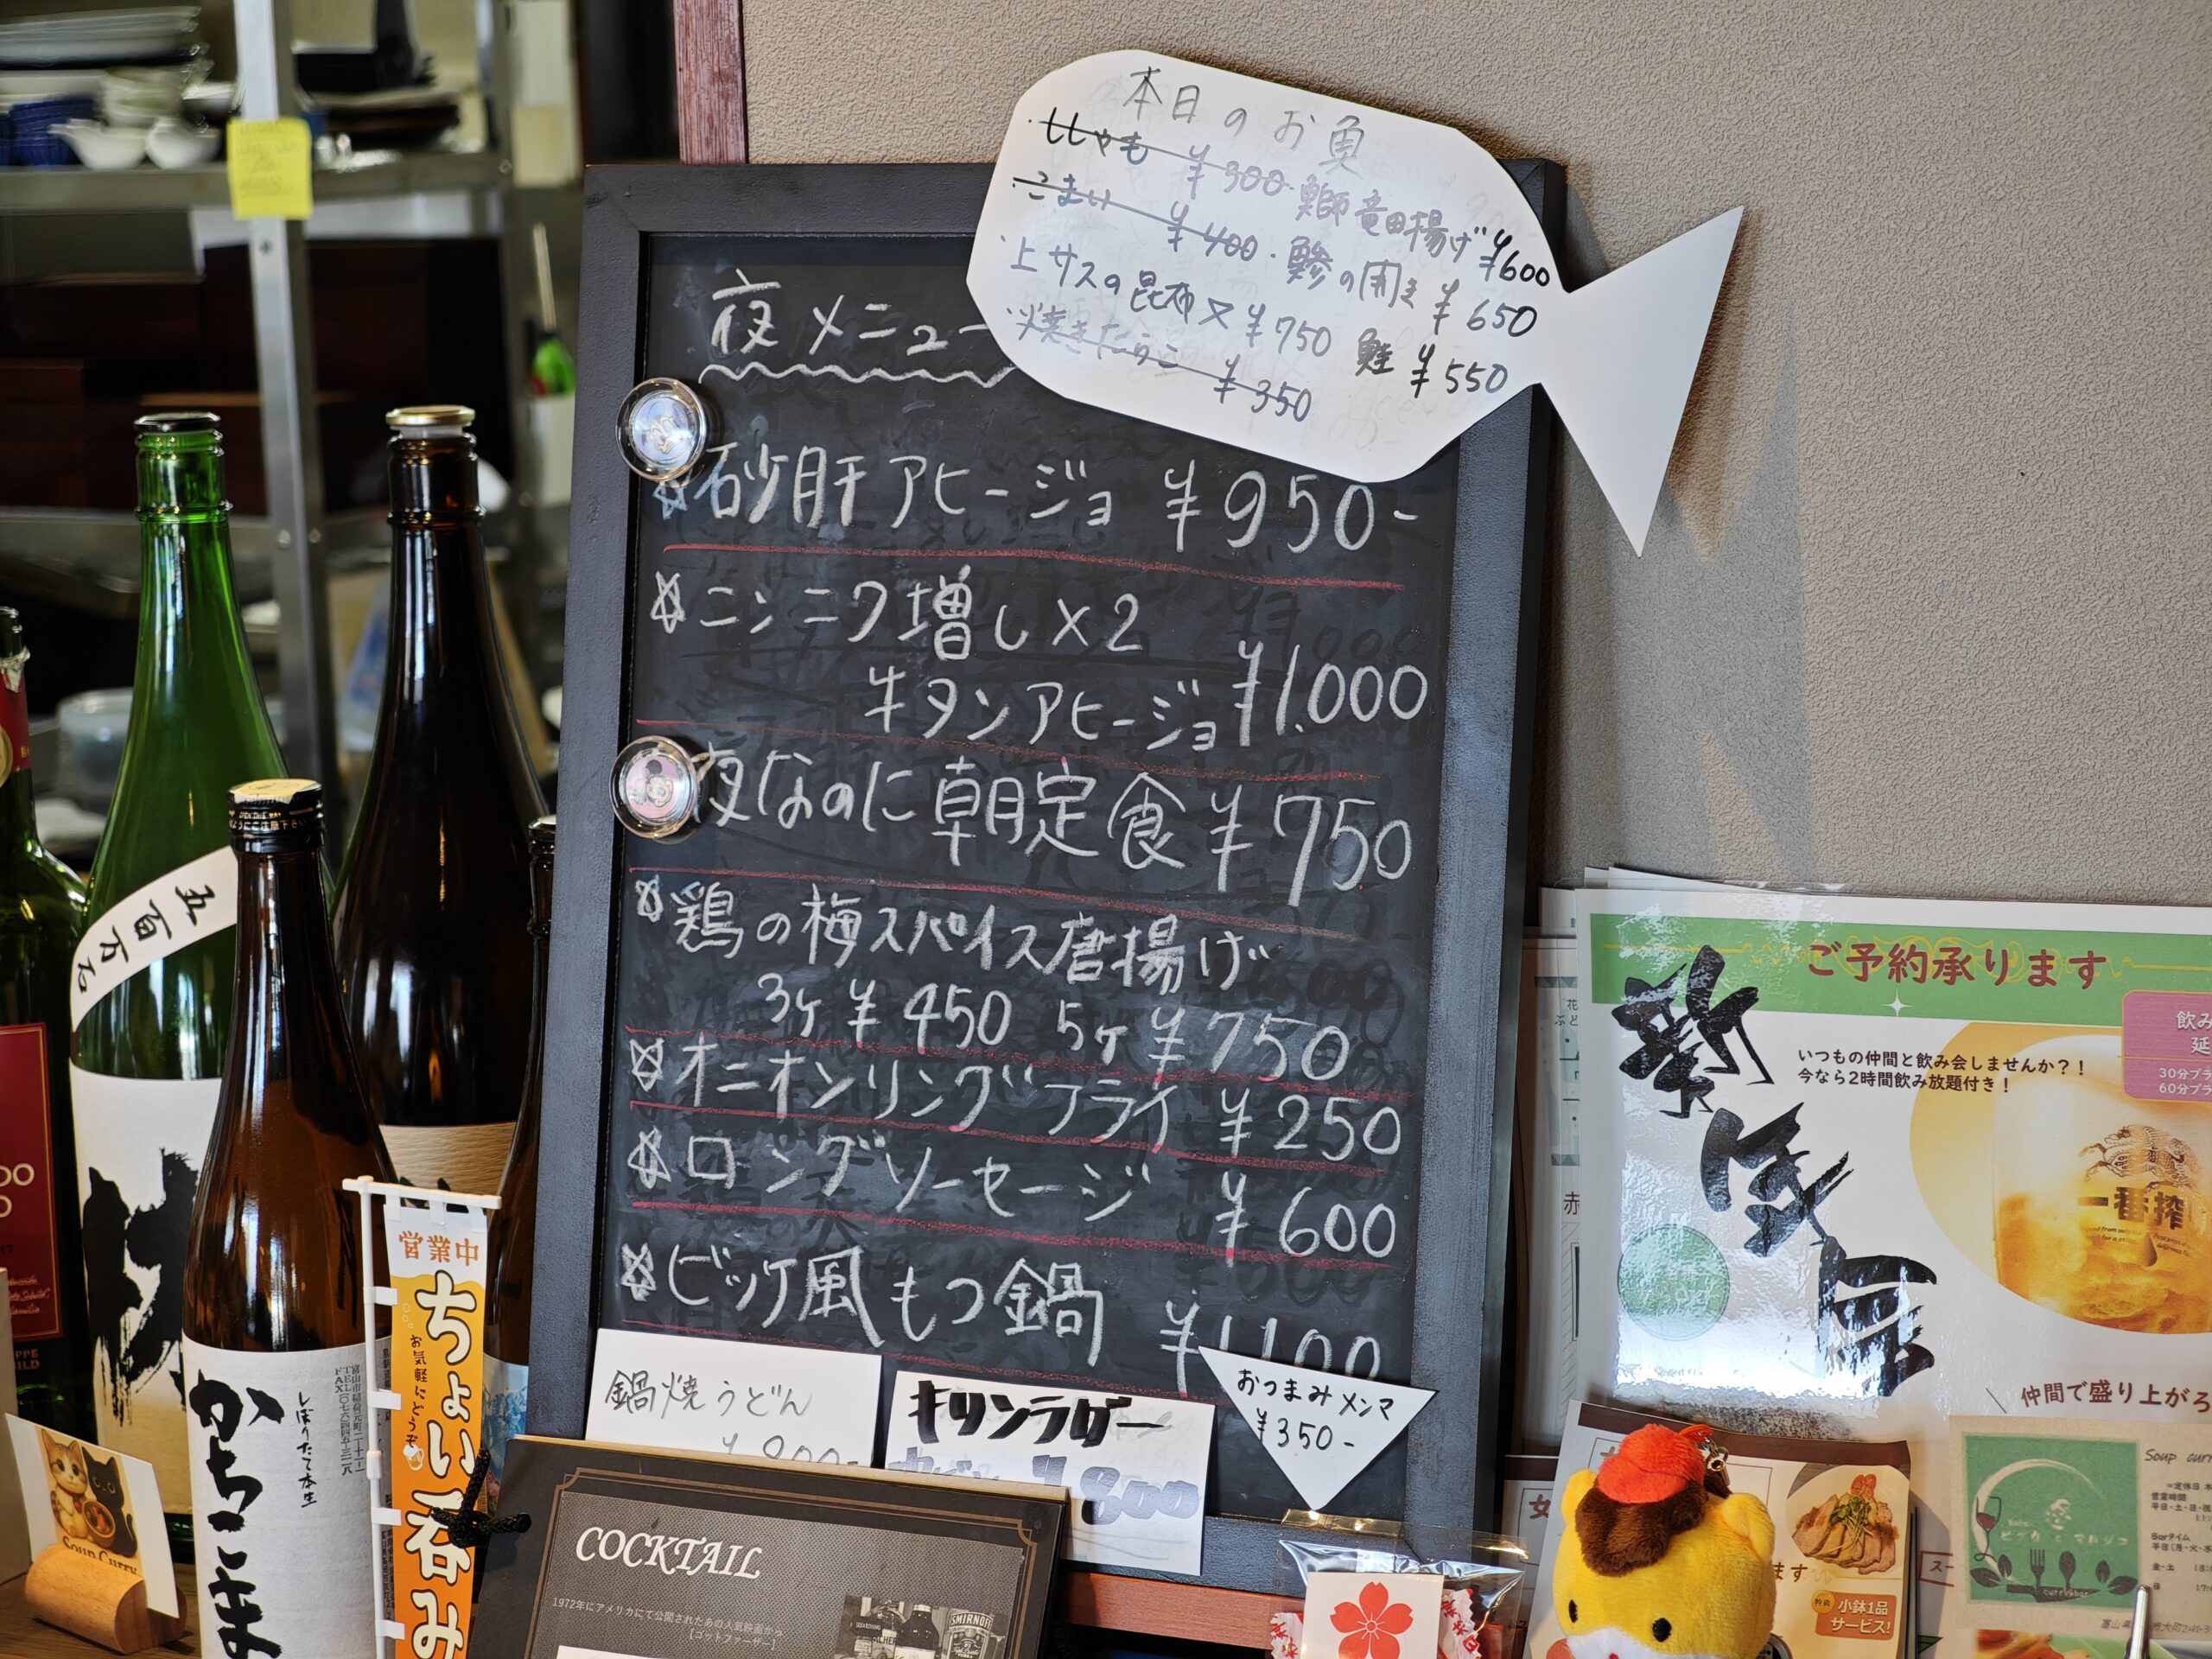 本日のお魚
ししゃも ¥300
・鰤竜田揚げ ¥600
こまい ¥400
・鯵の開き ¥650
上サスの昆布〆 ¥750
鮭 ¥550
焼きたらこ ¥350
夜メニュー
砂肝アヒージョ ¥950-
ニンニク増し×2
牛タンアヒージョ ¥1.000
夜なのに朝定食 ¥750
鶏の梅スパイス唐揚げ
3ヶ ¥450 5ヶ ¥750
オニオンリングフライ ¥250
ロングソーセージ ¥600
ビッケ風もつ鍋 ¥1100
鍋焼うどん
キリンラガー
¥800
おつまみメンマ
¥350-
COCKTAIL
1972年にアメリカにて公開されたあの人気映画から
【ゴットファーザー】
SMIRNOFF
五百万石
かちこま
しぼりたて本生
営業中
ちょい呑み
お気軽にどうぞ
SOUP CURRY
ご予約承ります
新年会
いつもの仲間と飲み会しませんか？！
今なら2時間飲み放題付き！
一番搾
仲間で盛り上がろ
小鉢1品
サービス!